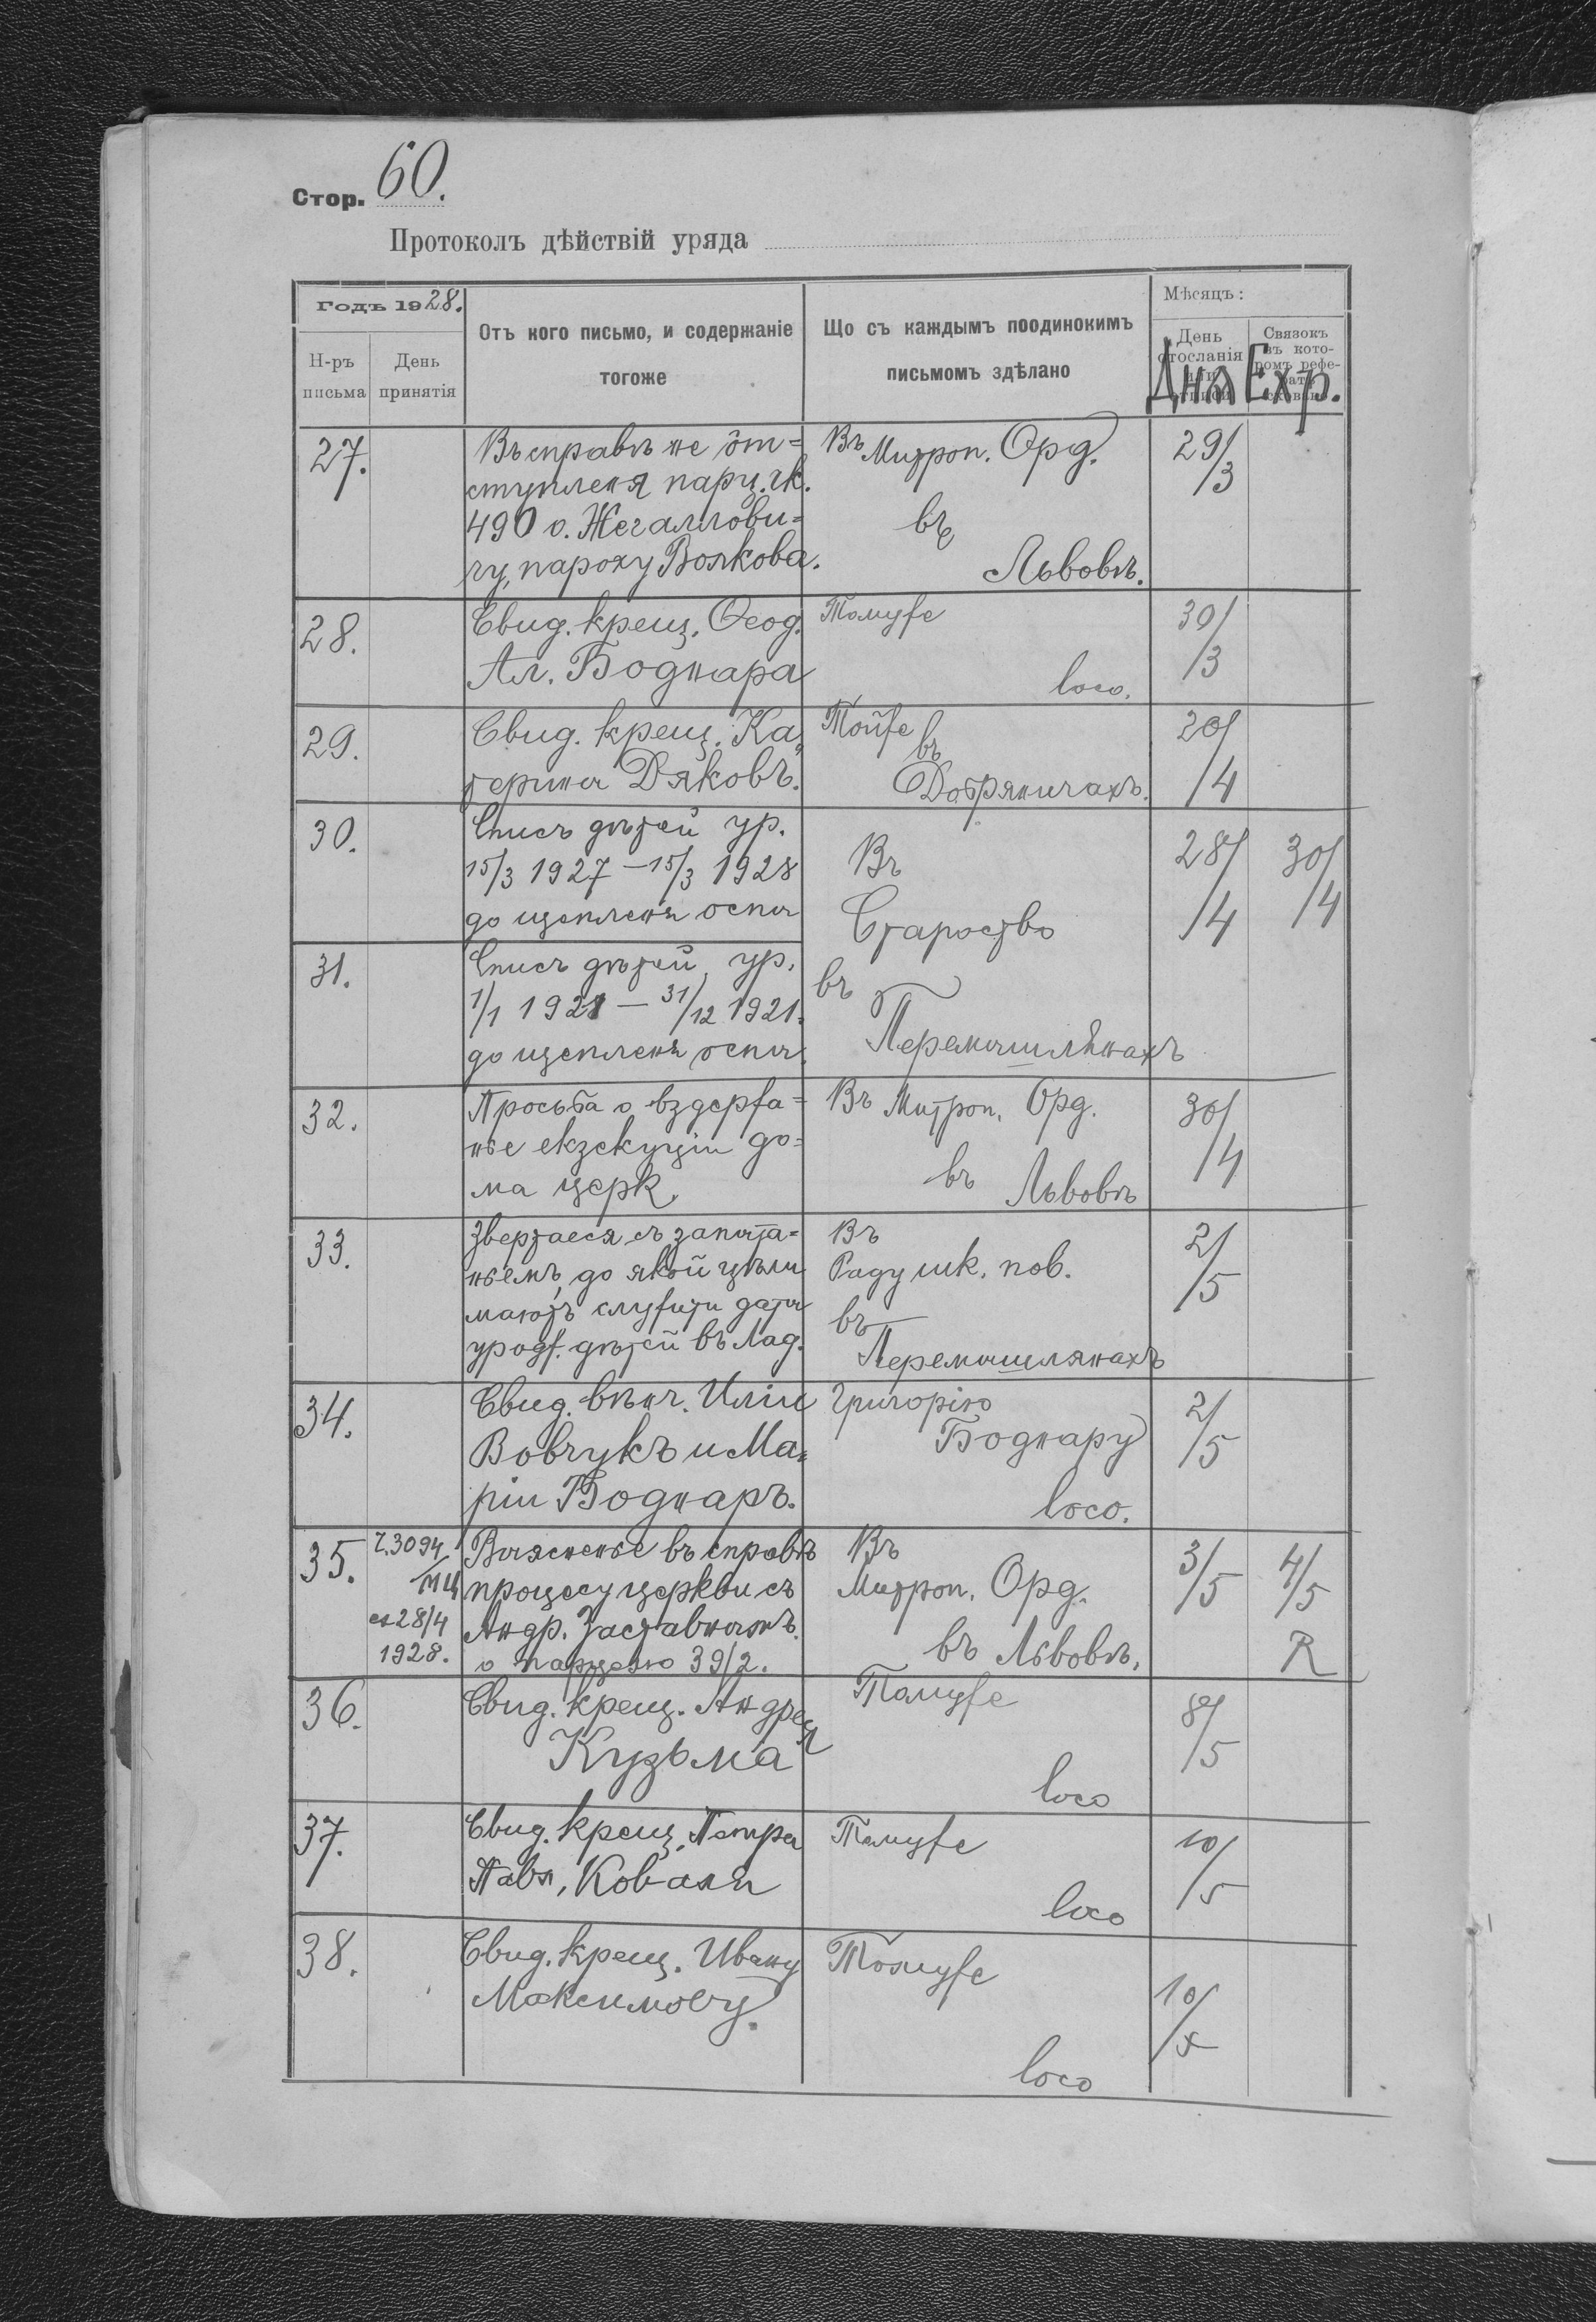 Стор. 60.
Протоколъ дѣйствій уряда
Годъ 1928.
Н-ръ письма
День принятія
Отъ кого письмо, и содержаніе
тогоже
Що съ каждымъ поодинокимъ
письмомъ здѣлано
Мѣсяцъ:
День
отосланія
Связокъ
въ кото-
ромъ рефе-
Дня Exp.
27.
Въ справѣ не ôт=
ступленя парц. гк.
490 о. Жегаллови=
чу, пароху Волкова.
Въ Митроп. Орд.
въ
Львовѣ.
29/3
28.
Свид. крещ. Ѳеод.
Ал. Боднара
Томуже
loco.
30/3
29.
Свид. крещ. Ка„
терина Дяковъ.
Тойже
въ
Добряничахъ.
20/4
30.
Списъ дѣтей ур.
15/3 1927 – 15/3 1928
до щепленя оспы
Въ
Староство
28/4
30/4
31.
Списъ дѣтей ур.
1/1 1921 – 31/12 1921.
до щепленя оспы.
въ
Перемышлянахъ
32.
Просьба о вздержа=
нье екзекуціи до=
ма церк.
Въ Митроп. Орд.
въ Львовѣ
30/4
33.
Звертаеся съ запыта=
ньемъ, до якой цѣли
мають служити даты
уродж. дѣтей въ Лад.
Въ
Раду шк. пов.
въ
Перемышлянахъ
2/5
34.
Свид. вѣнч. Иліи
Вовчукъ и Ма„
ріи Боднаръ.
Григорію
Боднару
loco.
2/5
35.
Ч. 3094/МЦ
28/4
1928.
Выясненье въ справѣ
процесу церкви съ
Андр. Заставнымъ.
о парцелю 39/2.
Въ
Митроп. Орд.
въ Львовѣ.
3/5
4/5
R
36.
Свид. крещ. Андрея
Кузьма
Томуже
loco
8/5
37.
Свид. крещ. Петра
Павл. Коваля
Томуже
loco
10/5
38.
Свид. крещ. Ивану
Максимову.
Томуже
loco
10/5